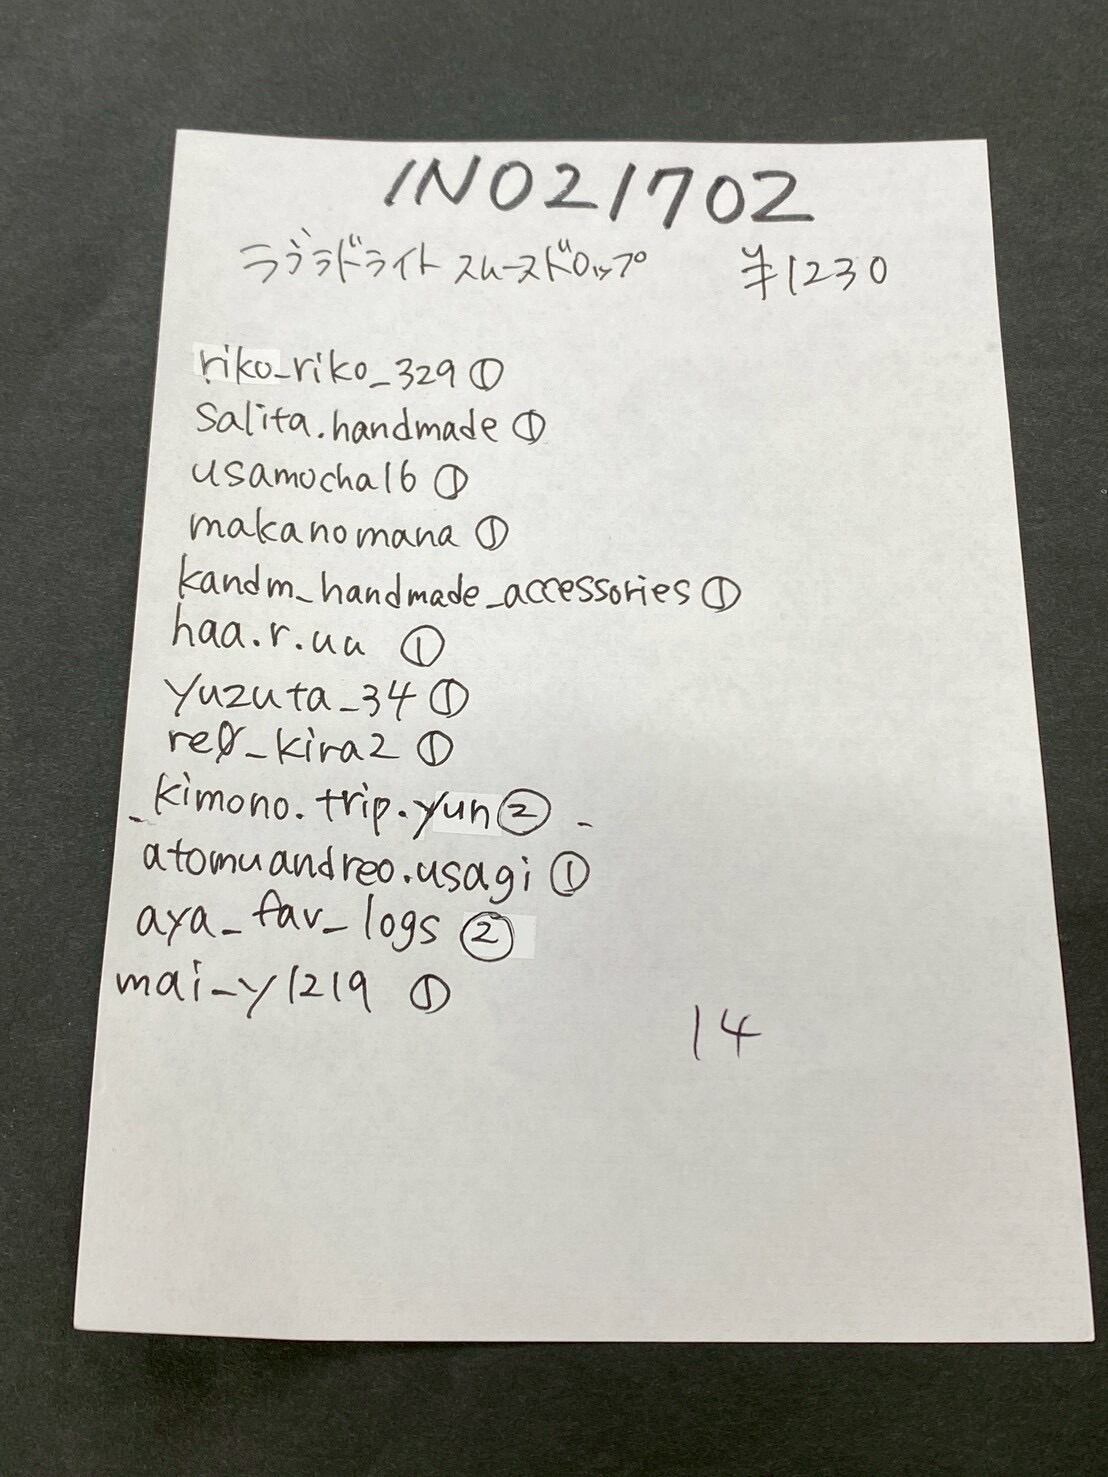 INO21702
ラブラドライト スムースドロップ ¥1230
riko_riko_329 ①
salita.handmade ①
usamocha16 ①
makanomana ①
kandm_handmade_accessories ①
haa.r.uu ①
yuzuta_34 ①
re0_kira2 ①
_kimono.trip.yun ② _
atomuandreo.usagi ①
aya_fav_logs ②
mai_y1219 ①
14